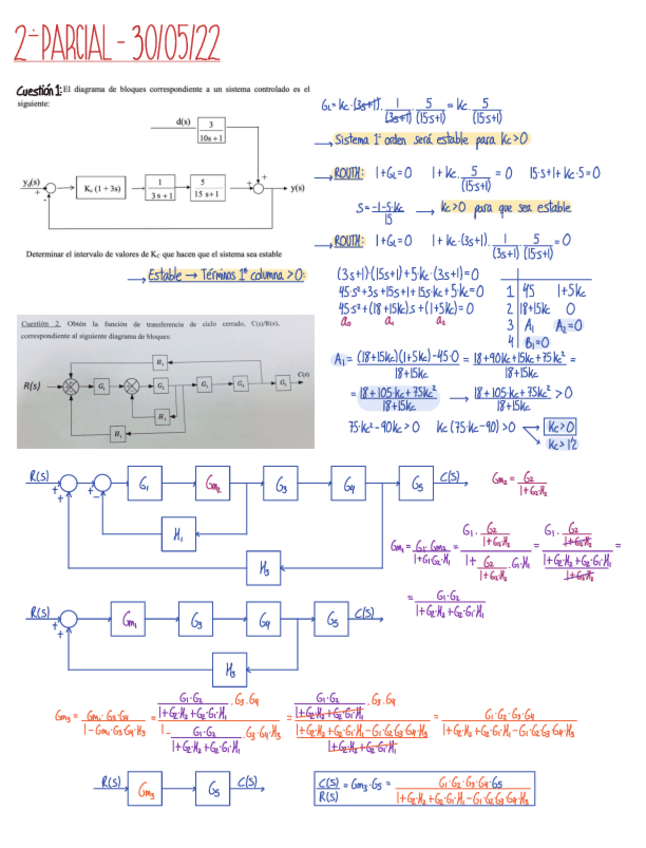 2º PARCIAL - 30/05/22
Cuestión 1: El diagrama de bloques correspondiente a un sistema controlado es el
siguiente:
d(s)
3
10s + 1
y_d(s)
+
-
K_c (1 + 3s)
1
3 s + 1
5
15 s+1
+
+
y(s)
Determinar el intervalo de valores de K_C que hacen que el sistema sea estable
→ Estable → Términos 1ª columna > 0:
G_L = Kc·(3s+1)· 1/(3s+1) · 5/(15·s+1) = Kc· 5/(15·s+1)
→ Sistema 1º orden será estable para Kc>0
→ ROUTH: 1+G_L=0 1+Kc· 5/(15s+1) = 0 15·s+1+Kc·5=0
s = -1-5·Kc/15 → Kc>0 para que sea estable
→ ROUTH: 1+G_L=0 1+Kc·(3s+1)· 1/(3s+1) · 5/(15s+1) = 0
(3s+1)·(15s+1)+5·Kc·(3s+1)=0
45·s²+3s+15s+1+15s·Kc+5·Kc=0
45s²+(18+15Kc)·s+(1+5Kc)=0
a₀ a₁ a₂
1 45 1+5Kc
2 18+15Kc 0
3 A₁ A₂=0
4 B₁=0
A₁ = (18+15Kc)(1+5Kc)-45·0 / 18+15Kc = 18+90Kc+15Kc+75Kc² / 18+15Kc =
= 18+105·Kc+75Kc² / 18+15Kc → 18+105·Kc+75Kc² / 18+15Kc > 0
75·Kc²-90Kc>0 Kc(75·Kc-90)>0 Kc>0
Kc>1'2
Cuestión 2. Obtén la función de transferencia de ciclo cerrado, C(s)/R(s),
correspondiente al siguiente diagrama de bloques:
R(s)
C(s)
R(s)
+
+
+
-
G₁
Gm₂
G₃
G₄
G₅
C(s)
H₁
H₃
Gm₂ = G₂ / 1+G₂·H₂
Gm₁ = G₁·Gm₂ / 1+G₁G₂·H₁ = G₁· G₂/1+G₂·H₂ / 1+ G₂/1+G₂·H₂ ·G₁·H₁ = G₁· G₂/1+G₂·H₂ / 1+G₂·H₂+G₂·G₁·H₁ / 1+G₂·H₂ =
= G₁·G₂ / 1+G₂·H₂+G₂·G₁·H₁
R(s)
+
+
Gm₁
G₃
G₄
G₅
C(s)
H₃
Gm₃ = Gm₁·G₃·G₄ / 1-Gm₁·G₃G₄·H₃ = G₁·G₂/1+G₂·H₂+G₂·G₁·H₁ ·G₃·G₄ / 1- G₁·G₂/1+G₂·H₂+G₂·G₁·H₁ ·G₃·G₄·H₃ = G₁·G₂/1+G₂·H₂+G₂·G₁·H₁ ·G₃·G₄ / 1+G₂·H₂+G₂·G₁·H₁-G₁·G₂G₃G₄·H₃ / 1+G₂·H₂+G₂·G₁·H₁ = G₁·G₂·G₃·G₄ / 1+G₂·H₂+G₂·G₁·H₁-G₁·G₂G₃G₄·H₃
R(s)
Gm₃
G₅
C(s)
C(s)/R(s) = Gm₃·G₅ = G₁·G₂·G₃·G₄·G5 / 1+G₂·H₂+G₂·G₁·H₁-G₁·G₂G₃G₄·H₃